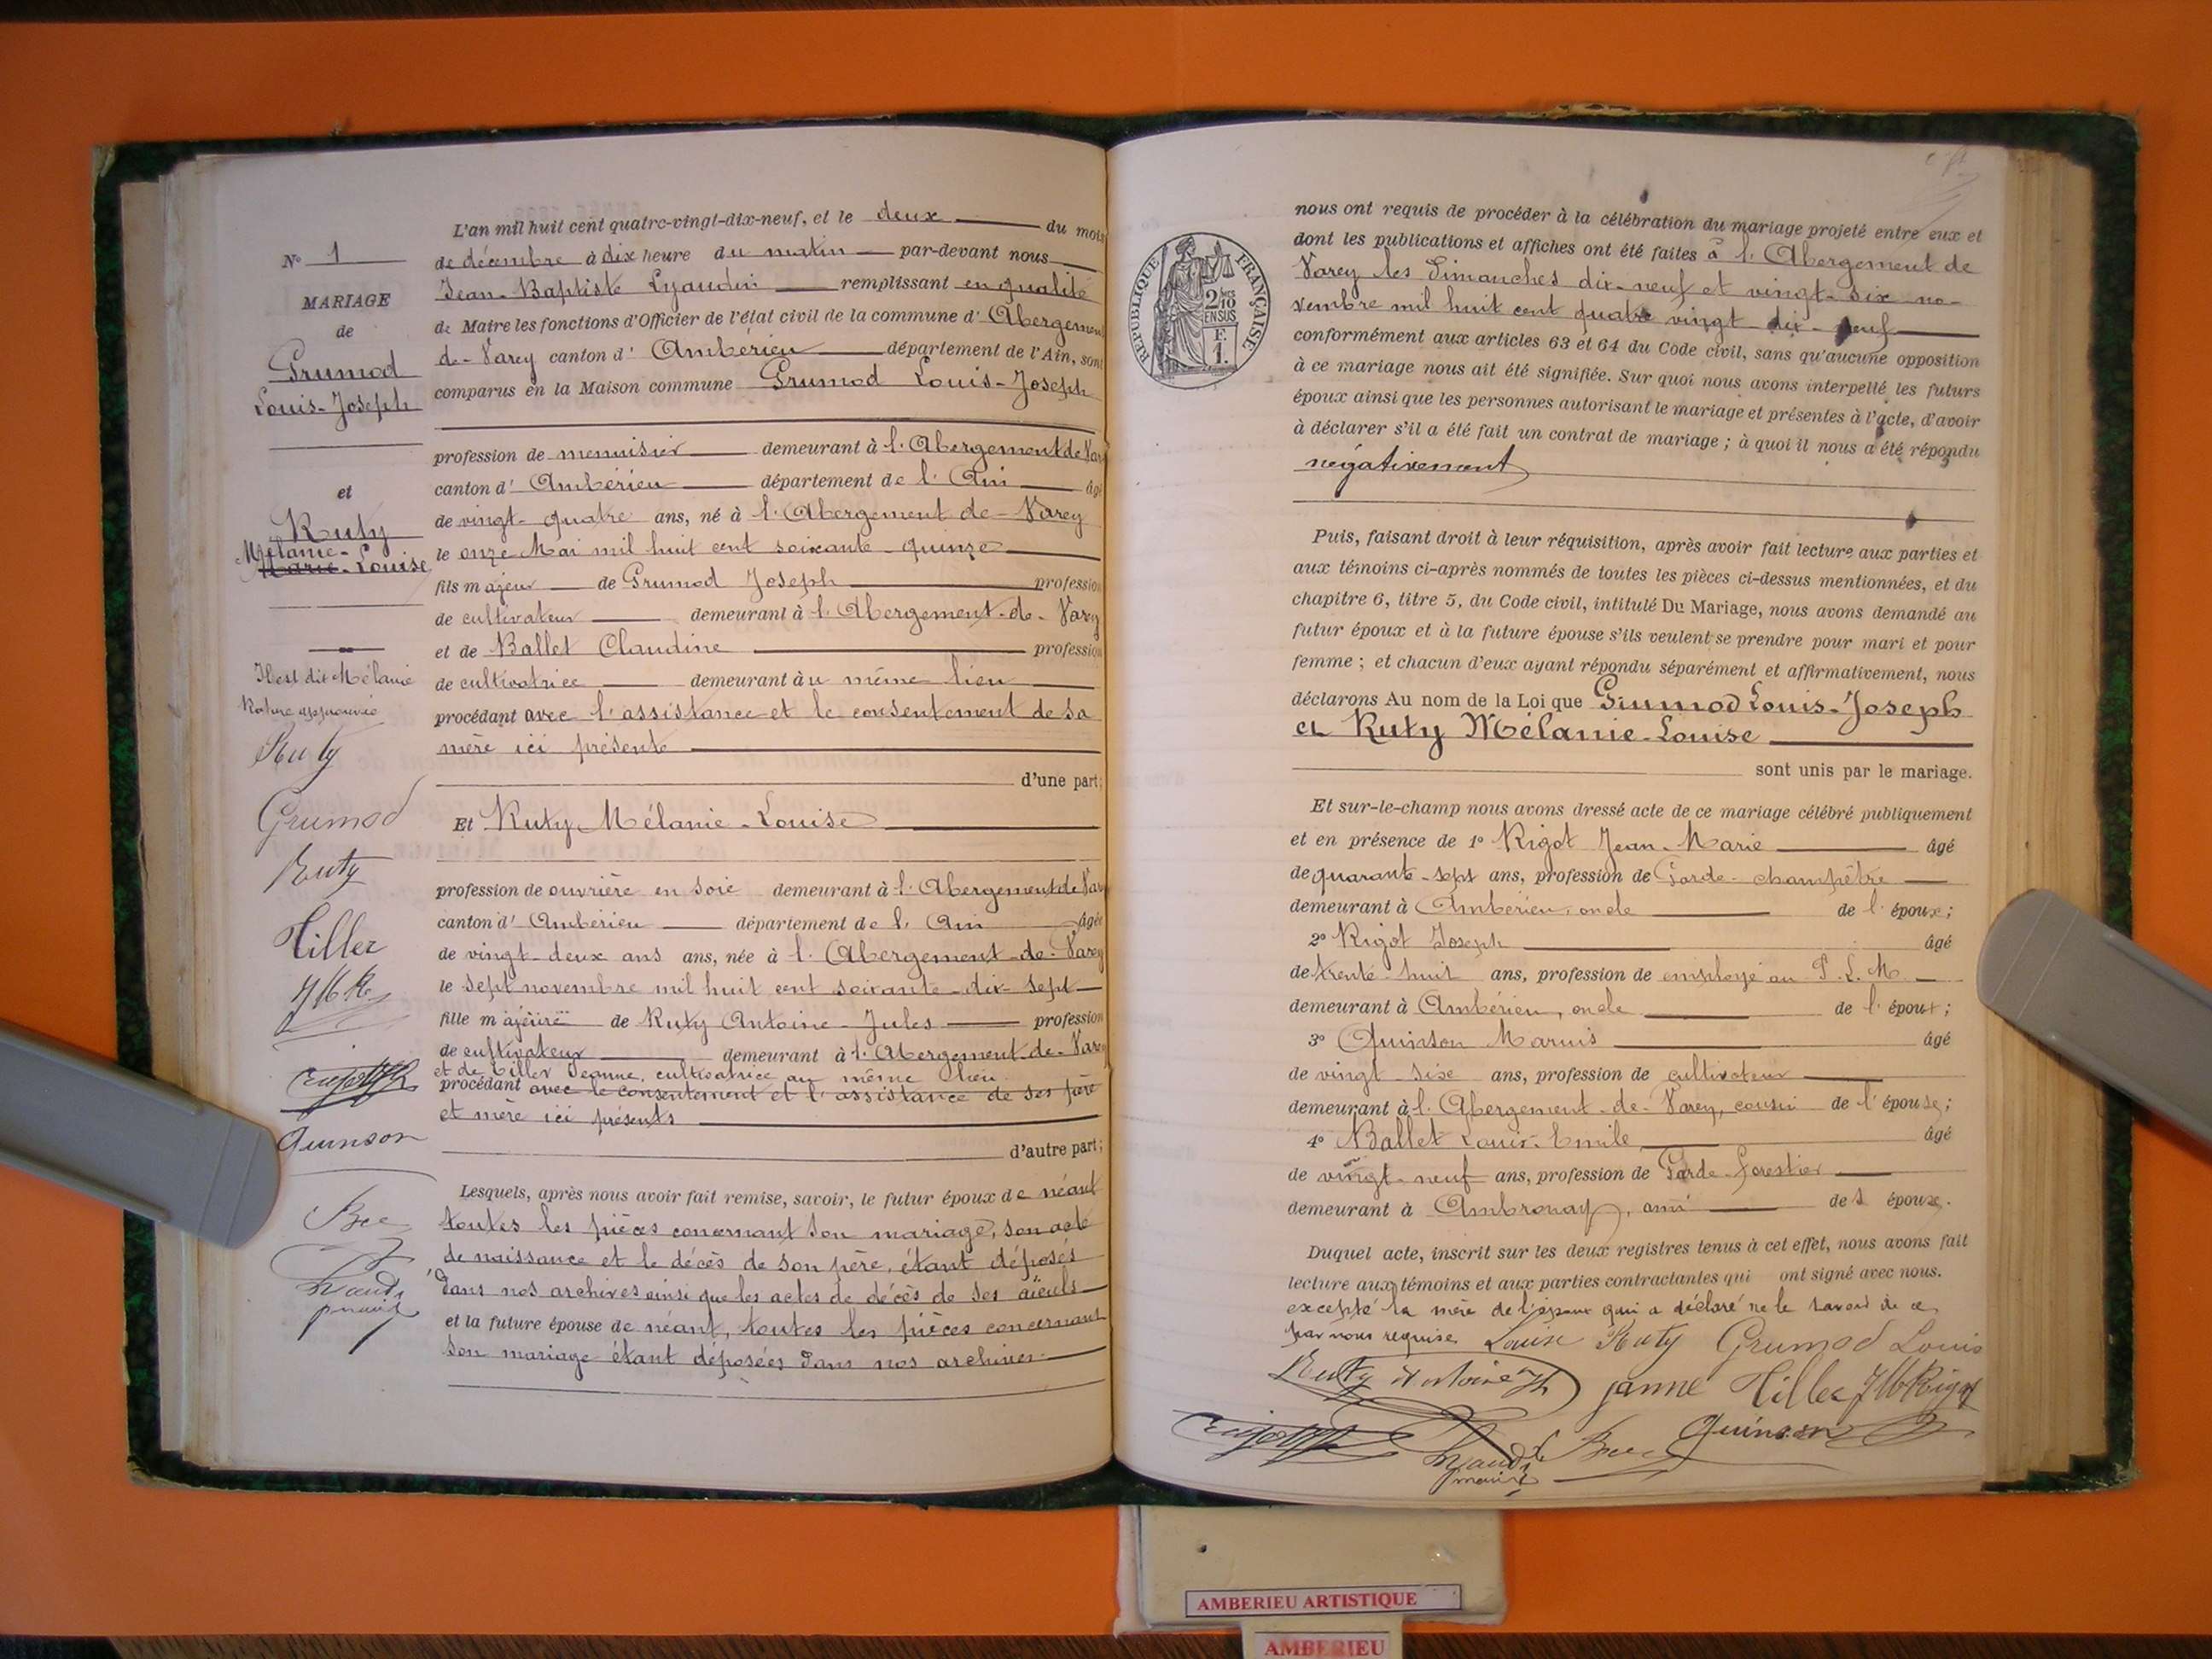 L'an mil huit cent quatre-vingt-dix-neuf, et le deux du mois
de décembre à dix heure du matin par-devant nous
Jean-Baptiste Lyaudin remplissant en qualité
de Maire les fonctions d'Officier de l'état civil de la commune d' Abergement
de-Varey canton d' Ambérieu département de l'Ain, sont
comparus en la Maison commune Grumod Louis-Joseph
profession de menuisier demeurant à l'Abergement de Var
canton d' Ambérieu département de l' Ain âgé
de vingt-quatre ans, né à l'Abergement de-Varey
le onze Mai mil huit cent soixante-quinze
fils majeur de Grumod Joseph profession
de cultivateur demeurant à l'Abergement-de-Varey
et de Ballet Claudine profession
de cultivatrice demeurant au même lieu
procédant avec l'assistance et le consentement de sa
mère ici présente
d'une part;
Et Ruty Mélanie-Louise
profession de ouvrière en soie demeurant à l'Abergement de Var
canton d' Ambérieu département de l' Ain âgée
de vingt-deux ans ans, née à l'Abergement-de-Varey
le sept novembre mil huit cent soixante-dix-sept
fille majeure de Ruty Antoine-Jules profession
de cultivateur demeurant à l'Abergement-de-Varey
et de Tiller Jeanne, cultivatrice au même lieu
procédant avec le consentement et l'assistance de ses père
et mère ici présents
d'autre part;
Lesquels, après nous avoir fait remise, savoir, le futur époux de néant
toutes les pièces concernant son mariage, son acte
de naissance et le décès de son père, étant déposés
dans nos archives ainsi que les actes de décès de ses aïeuls
et la future épouse de néant, toutes les pièces concernant
son mariage étant déposées dans nos archives
N° 1
MARIAGE
de
Grumod
Louis-Joseph
et
Ruty
Mélanie-
Marie-Louise
Il est dit Mélanie
Rature approuvée
Ruty
Grumod
Ruty
Tiller
JMR
Quinson
maire
RÉPUBLIQUE FRANÇAISE
2/10
EN SUS
F.
1.
nous ont requis de procéder à la célébration du mariage projeté entre eux et
dont les publications et affiches ont été faites à l'Abergement de
Varey les Dimanches dix-neuf et vingt-six no-
vembre mil huit cent quatre vingt dix-neuf
conformément aux articles 63 et 64 du Code civil, sans qu'aucune opposition
à ce mariage nous ait été signifiée. Sur quoi nous avons interpellé les futurs
époux ainsi que les personnes autorisant le mariage et présentes à l'acte, d'avoir
à déclarer s'il a été fait un contrat de mariage; à quoi il nous a été répondu
négativement
Puis, faisant droit à leur réquisition, après avoir fait lecture aux parties et
aux témoins ci-après nommés de toutes les pièces ci-dessus mentionnées, et du
chapitre 6, titre 5, du Code civil, intitulé Du Mariage, nous avons demandé au
futur époux et à la future épouse s'ils veulent se prendre pour mari et pour
femme; et chacun d'eux ayant répondu séparément et affirmativement, nous
déclarons Au nom de la Loi que Grumod Louis-Joseph
et Ruty Mélanie-Louise
sont unis par le mariage.
Et sur-le-champ nous avons dressé acte de ce mariage célébré publiquement
et en présence de 1° Rigot Jean-Marie âgé
de quarante-sept ans, profession de Garde-champêtre
demeurant à Ambérieu, oncle de l'époux;
2° Rigot Joseph âgé
de trente-huit ans, profession de employé au P.L.M.
demeurant à Ambérieu, oncle de l'époux;
3° Quinson Marius âgé
de vingt-six ans, profession de cultivateur
demeurant à l'Abergement-de-Varey, cousin de l'épouse;
4° Ballet Louis-Emile âgé
de vingt-neuf ans, profession de Garde-forestier
demeurant à Ambronay, ami des époux.
Duquel acte, inscrit sur les deux registres tenus à cet effet, nous avons fait
lecture aux témoins et aux parties contractantes qui ont signé avec nous.
excepté la mère de l'époux qui a déclaré ne le savoir de ce
par nous requise Louise Ruty Grumod Louis
Ruty Antoine Janne Tiller JM Rigot
Quinson
maire
AMBERIEU ARTISTIQUE
AMBERIEU